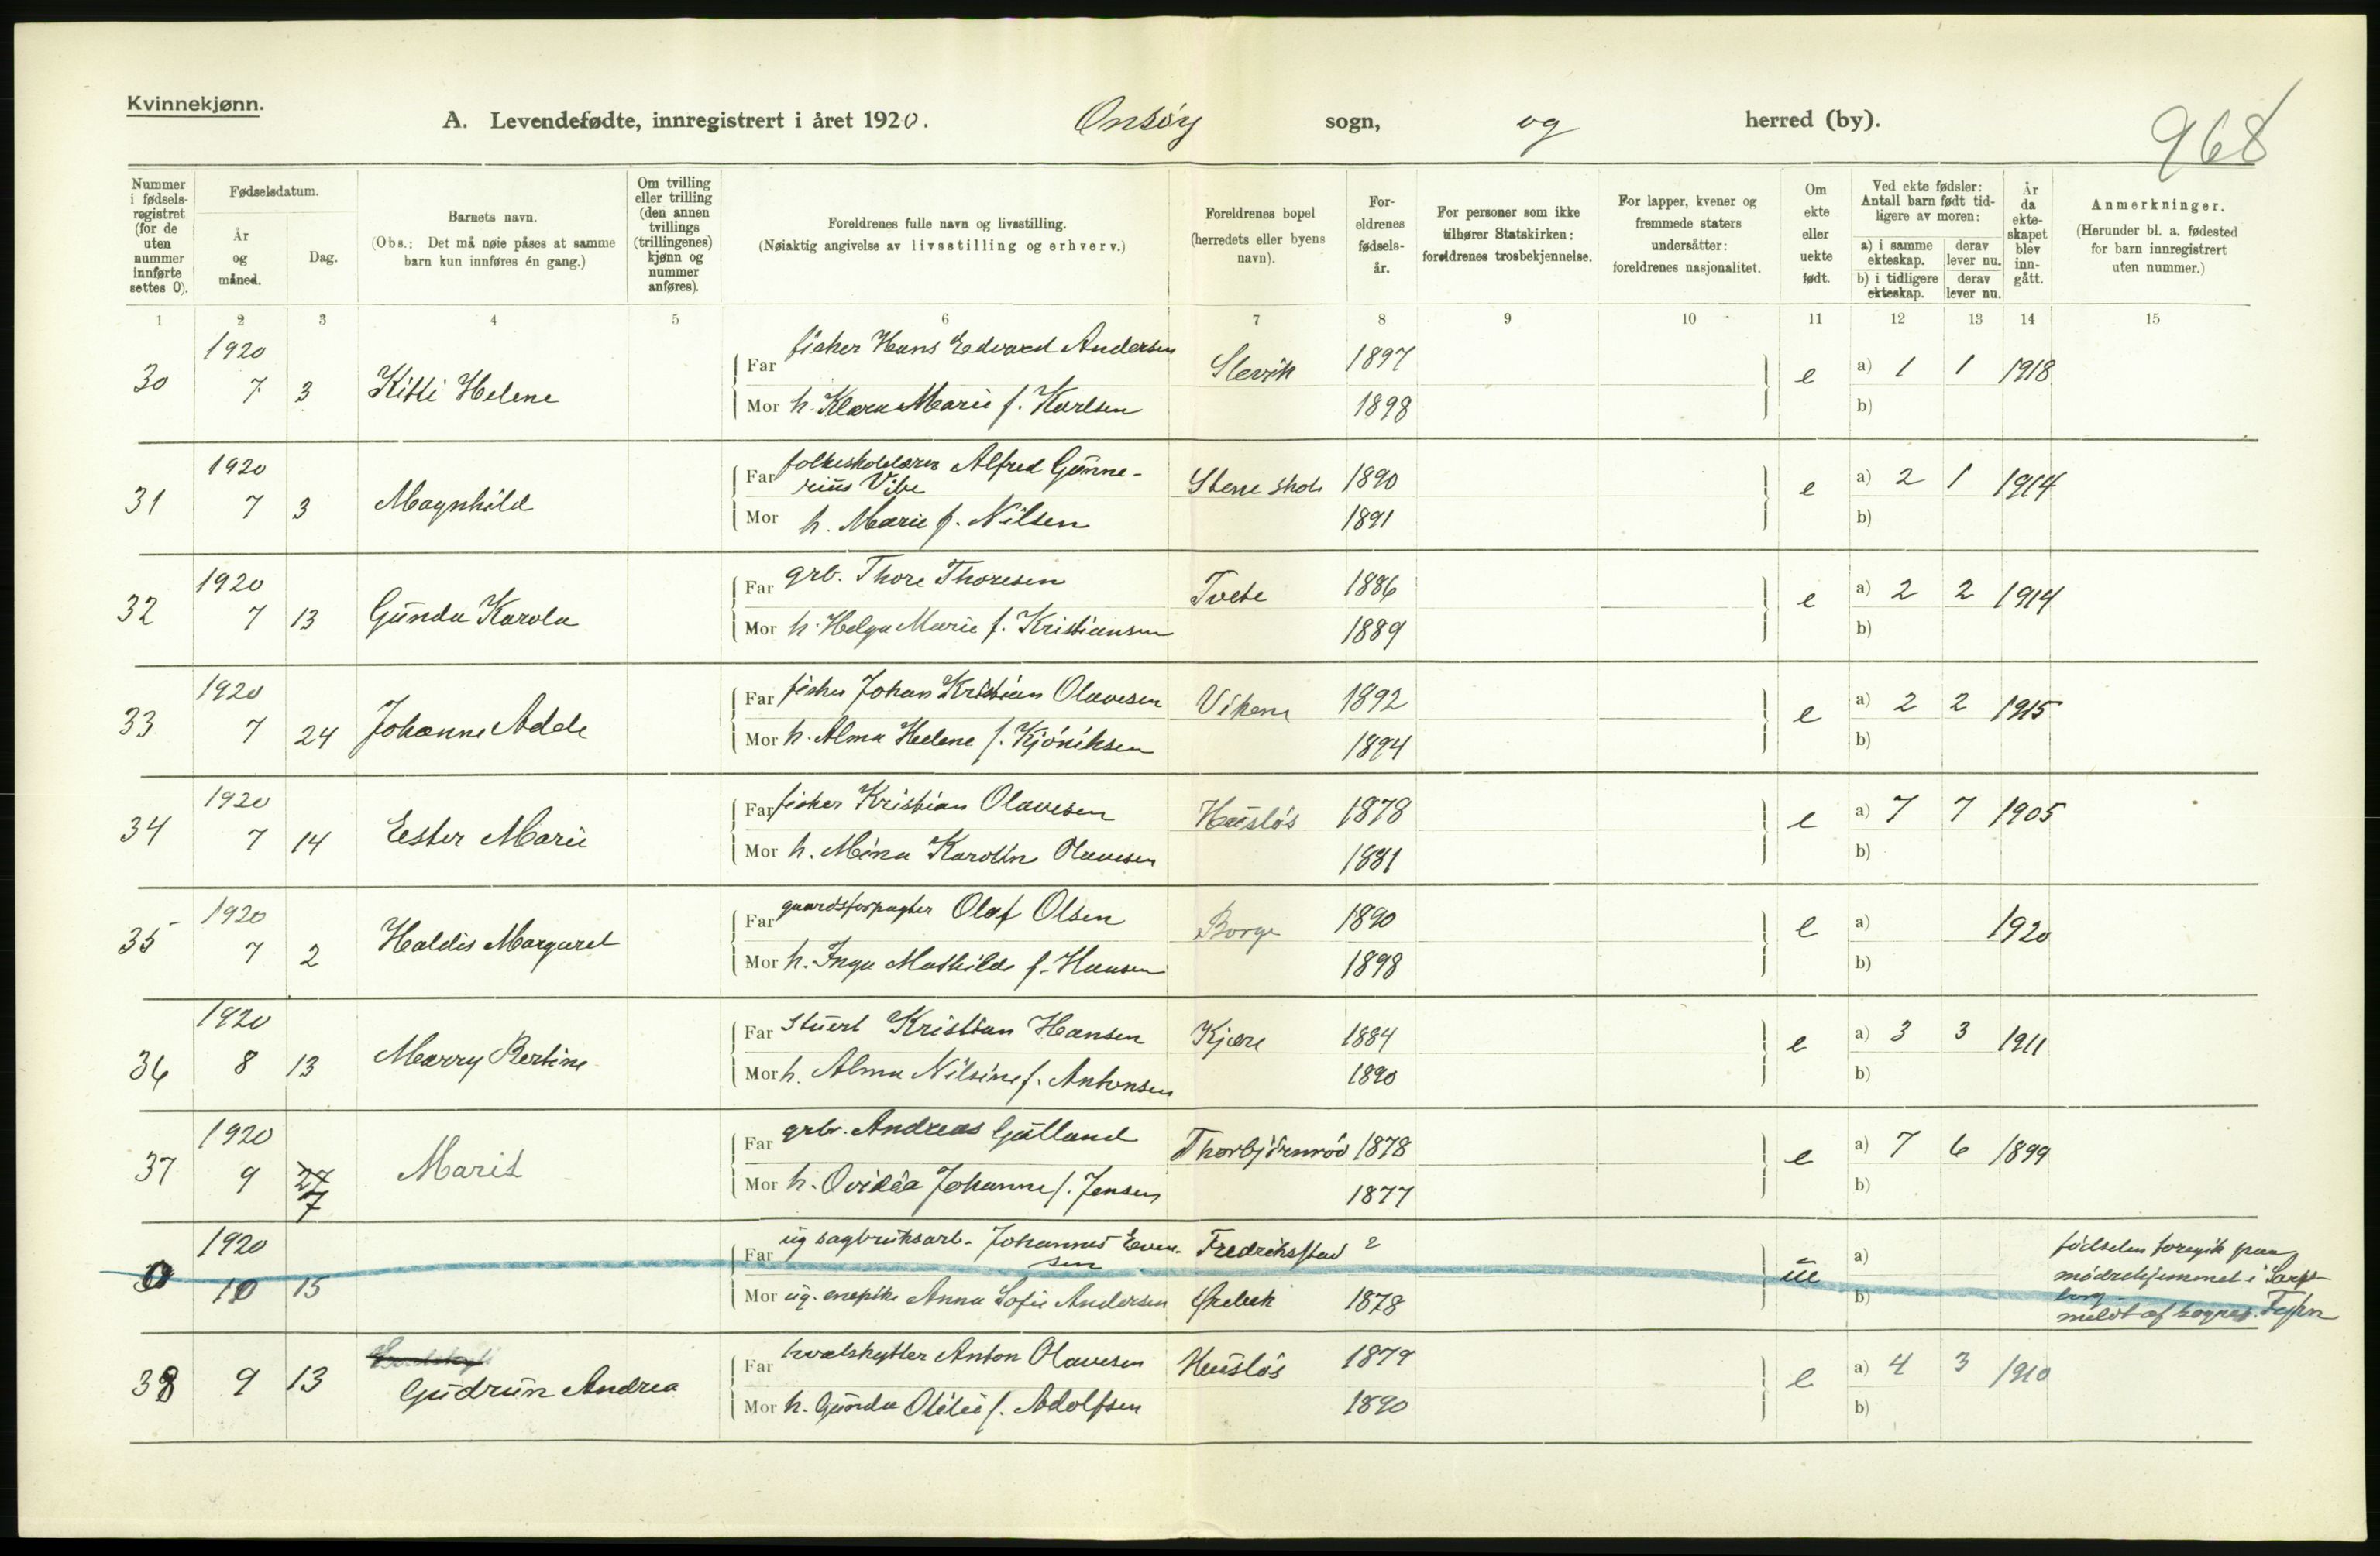 Kvinnekjønn.
A. Levendefødte, innregistrert i året 1920. Onsöy sogn, og herred (by).
968
Nummer i fødsels-registret (for de uten nummer innførte settes 0).
Fødselsdatum.
År og måned.
Dag.
Barnets navn.
(Obs.: Det må nøie påses at samme barn kun innføres én gang.)
Om tvilling eller trilling (den annen tvillings (trillingenes) kjønn og nummer anføres).
Foreldrenes fulle navn og livsstilling.
(Nøiaktig angivelse av livsstilling og erhverv.)
Foreldrenes bopel (herredets eller byens navn).
For-eldrenes fødsels-år.
For personer som ikke tilhører Statskirken: foreldrenes trosbekjennelse.
For lapper, kvener og fremmede staters undersåtter: foreldrenes nasjonalitet.
Om ekte eller uekte født.
Ved ekte fødsler: Antall barn født tid-ligere av moren:
a) i samme ekteskap. derav lever nu.
b) i tidligere ekteskap. derav lever nu.
År da ekte-skapet blev inn-gått.
Anmerkninger.
(Herunder bl. a. fødested for barn innregistrert uten nummer.)
1 2 3 4 5 6 7 8 9 10 11 12 13 14 15
30 1920 7 3 Kitti Helene
Far fisker Hans Edvard Andersen Slevik 1897 e a) 1 1 1918
Mor h. Klara Marie f. Karlsen 1898 b)
31 1920 7 3 Magnhild
Far folkeskolelærer Alfred Günne-
rius Vibe Stene skole 1890 e a) 2 1 1914
Mor h. Marie f. Nilsen 1891 b)
32 1920 7 13 Günda Karola
Far grb. Thore Thoresen Tvete 1886 e a) 2 2 1914
Mor h. Helga Marie f. Kristiansen 1889 b)
33 1920 7 24 Johanne Adele
Far fisker Johan Kristian Olavesen Vikene 1892 e a) 2 2 1915
Mor h. Alma Helene f. Kjöniksen 1894 b)
34 1920 7 14 Ester Marie
Far fisker Kristian Olavesen Hüslös 1878 e a) 7 7 1905
Mor h. Mina Karoline Olavesen 1881 b)
35 1920 7 2 Haldis Margaret
Far gaardsforpagter Olaf Olsen Borge 1890 e a) 1920
Mor h. Inga Mathilde f. Hansen 1898 b)
36 1920 8 13 Marry Bertine
Far stüert Kristian Hansen Kjære 1884 e a) 3 3 1911
Mor h. Alma Nilsine f. Antonsen 1890 b)
37 1920 9 27 7 Marit
Far grbr. Andreas Gülland Thorbjörnröd 1878 e a) 7 6 1899
Mor h. Ovidia Johanne f. Jensen 1877 b)
0 1920 10 15
Far üg sagbrüksarb. Johannes Even-
sen Fredrikstad ? üe a)
Mor üg. enepike Anna Sofie Andersen 1878 b)
födselen foregik paa
mödrehjemmet i Sarps-
borg
meldt af sognepr.
38 9 13 Güdrün Andrea
Far hvalskytter Anton Olavesen Hüslös 1879 e a) 4 3 1910
Mor h. Günda Otilie f. Adolfsen 1890 b)